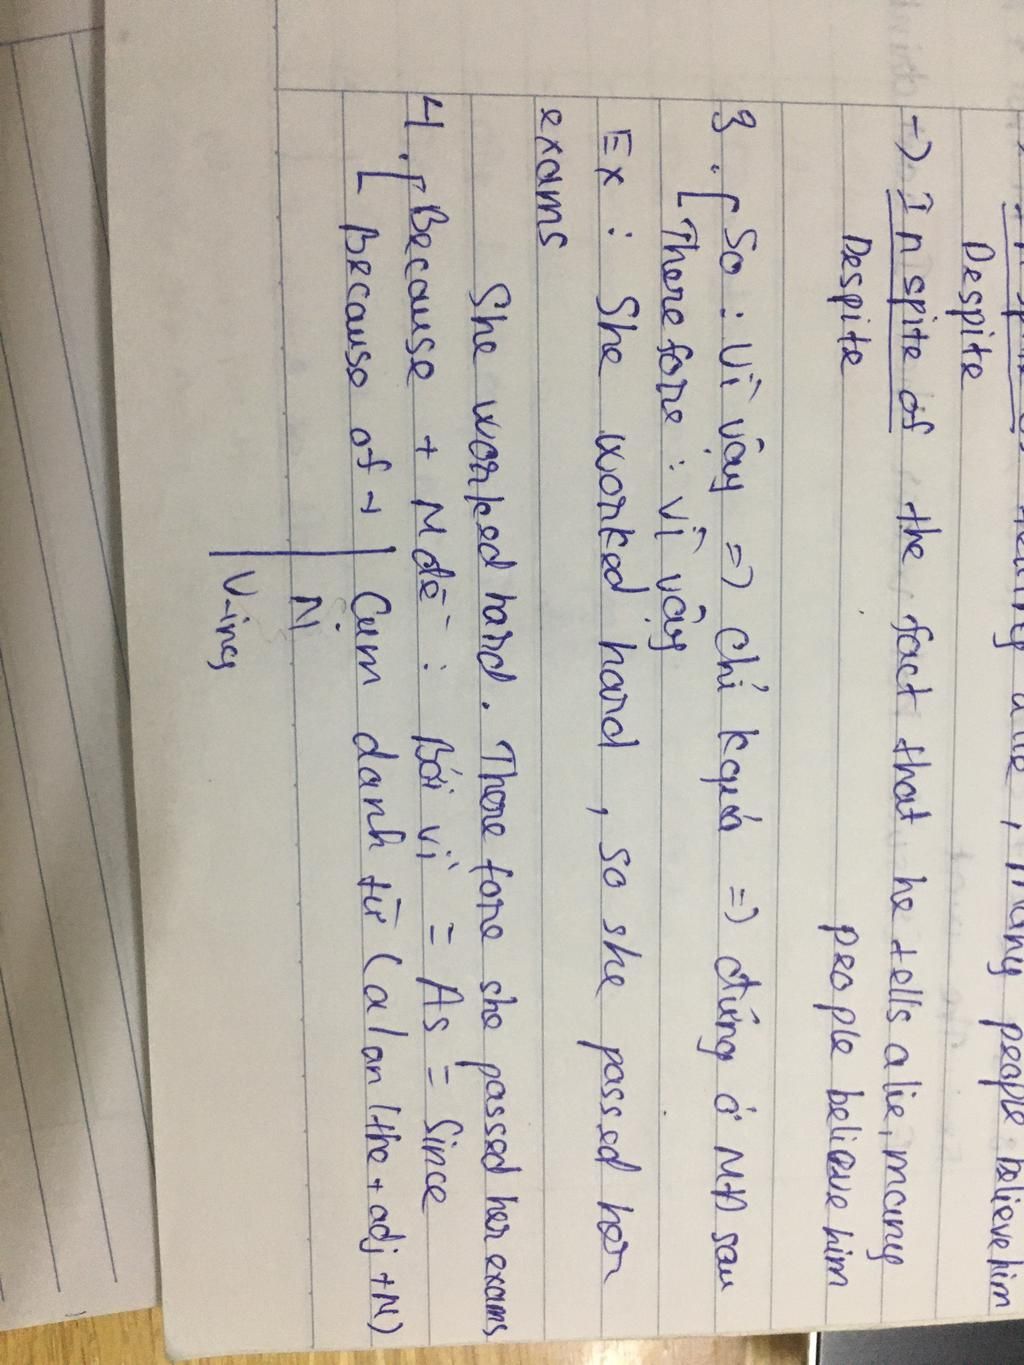 Despite
-> In spite of the fact that he tells a lie, many
Despite people believe him
3. [ So : vì vậy => chỉ kquả => đứng ở MĐ sau
[ Therefore : vì vậy
Ex : She worked hard , so she passed her
exams
She worked hard. Therefore she passed her exams
4. [ Because + Mđề : Bởi vì = As = Since
[ Because of + | Cụm danh từ (a/an/the + adj + N)
N.
V-ing